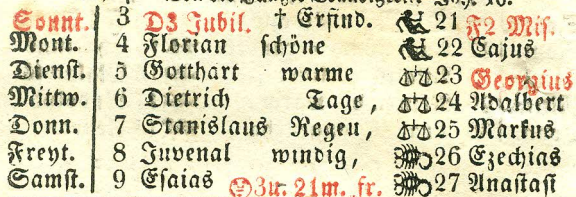 Sonnt. 3 D3 Jubil. † Erfind. 21 F2 Mis.
Mont. 4 Florian schöne 22 Cajus
Dienst. 5 Gotthart warme 23 Georgius
Mittw. 6 Dietrich Tage, 24 Adalbert
Donn. 7 Stanislaus Regen, 25 Markus
Freyt. 8 Juvenal windig, 26 Ezechias
Samst. 9 Esaias 3u. 21m. fr. 27 Anastasi